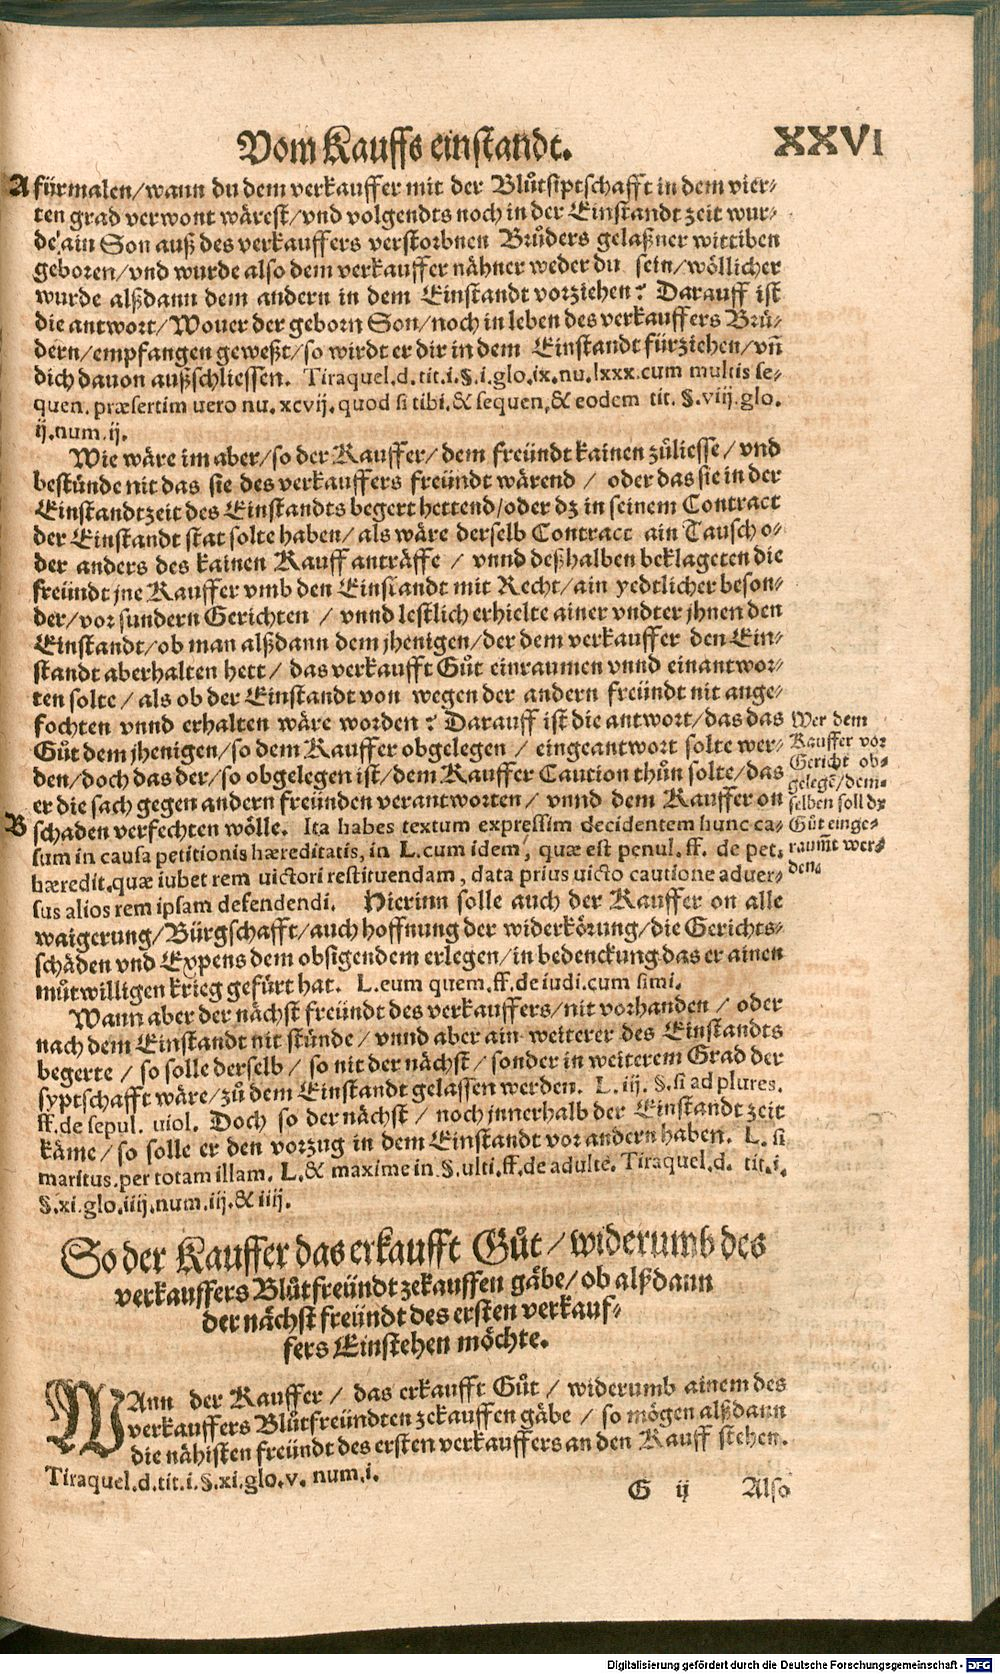 Vom Kauffs einstandt. XXVI
A fürmalen/wann du dem verkauffer mit der Blůtsiptschafft in dem vier-
ten grad verwont wärest/vnd volgendts noch in der Einstandt zeit wur-
de ain Son auß des verkauffers verstorbnen Brůders gelaßner wittiben
geboren/vnd wurde also dem verkauffer nähner weder du sein/wöllicher
wurde alßdann dem andern in dem Einstandt vorziehen? Darauff ist
die antwort/Wouer der geborn Son/noch in leben des verkauffers Brů-
dern/empfangen geweßt/so wirdt er dir in dem Einstandt fürziehen/vñ
dich dauon außschliessen. Tiraquel.d.tit.i.§.i.glo.ix.nu.lxxx.cum multis se-
quen. præsertim vero nu. xcvij. quod si tibi.& sequen.& eodem tit. §.viij.glo.
ij.num.ij.
Wie wäre im aber/so der Kauffer/dem freündt kainen zůliesse/vnd
bestünde nit das sie des verkauffers freündt wärend / oder das sie in der
Einstandtzeit des Einstandts begert hettend/oder dz in seinem Contract
der Einstandt stat solte haben/als wäre derselb Contract ain Tausch o-
der anders des kainen Kauff anträffe / vnnd deßhalben beklageten die
freündt jne Kauffer vmb den Einstandt mit Recht/ain yedtlicher beson-
der/vor sundern Gerichten / vnnd lestlich erhielte ainer vndter jhnen den
Einstandt/ob man alßdann dem jhenigen/der dem verkauffer den Ein-
standt aberhalten hett / das verkaufft Gůt einraumen vnnd einantwor-
ten solte / als ob der Einstandt von wegen der andern freündt nit ange-
fochten vnnd erhalten wäre worden? Darauff ist die antwort/das das
Gůt dem jhenigen/so dem Kauffer obgelegen / eingeantwort solte wer-
den/doch das der/so obgelegen ist/dem Kauffer Caution thůn solte/das
er die sach gegen andern freünden verantworten / vnnd dem Kauffer on
B schaden verfechten wölle. Ita habes textum expressim decidentem hunc ca-
sum in causa petitionis hæreditatis, in L.cum idem, quæ est penul.ff. de pet.
hæredit.quæ iubet rem victori restituendam, data prius victo cautione aduer-
sus alios rem ipsam defendendi. Hierinn solle auch der Kauffer on alle
waigerung/Bürgschafft/auch hoffnung der widerkörung/die Gerichts-
schäden vnd Expens dem obsigendem erlegen/in bedenckung das er ainen
můtwilligen krieg gefürt hat. L.eum quem.ff.de iudi.cum simi.
Wer dem
Kauffer vor
Gericht ob-
gelegẽ/dem-
selben soll dz
Gůt einge-
raumt wer-
den.
Wann aber der nächst freündt des verkauffers/nit vorhanden / oder
nach dem Einstandt nit stünde / vnnd aber ain weiterer des Einstandts
begerte / so solle derselb / so nit der nächst / sonder in weiterem Grad der
syptschafft wäre/zů dem Einstandt gelassen werden. L.iij.§.si ad plures.
ff.de sepul. uiol. Doch so der nächst / noch jnnerhalb der Einstandt zeit
käme/so solle er den vorzug in dem Einstandt vor andern haben. L. si
maritus.per totam illam. L.& maxime in §.ulti.ff.de adulte. Tiraquel.d. tit.i.
§.xi.glo.iiij.num.iij.& iiij.
So der Kauffer das erkaufft Gůt/widerumb des
verkauffers Blůtfreündt zekauffen gäbe/ob alßdann
der nächst freündt des ersten verkauf-
fers Einstehen möchte.
WAnn der Kauffer / das erkaufft Gůt / widerumb ainem des
verkauffers Blůtfreündten zekauffen gäbe / so mögen alßdann
die nähisten freündt des ersten verkauffers an den Kauff stehen.
Tiraquel.d.tit.i.§.xi.glo.v. num.i.
G ij Also
Digitalisierung gefördert durch die Deutsche Forschungsgemeinschaft - DFG